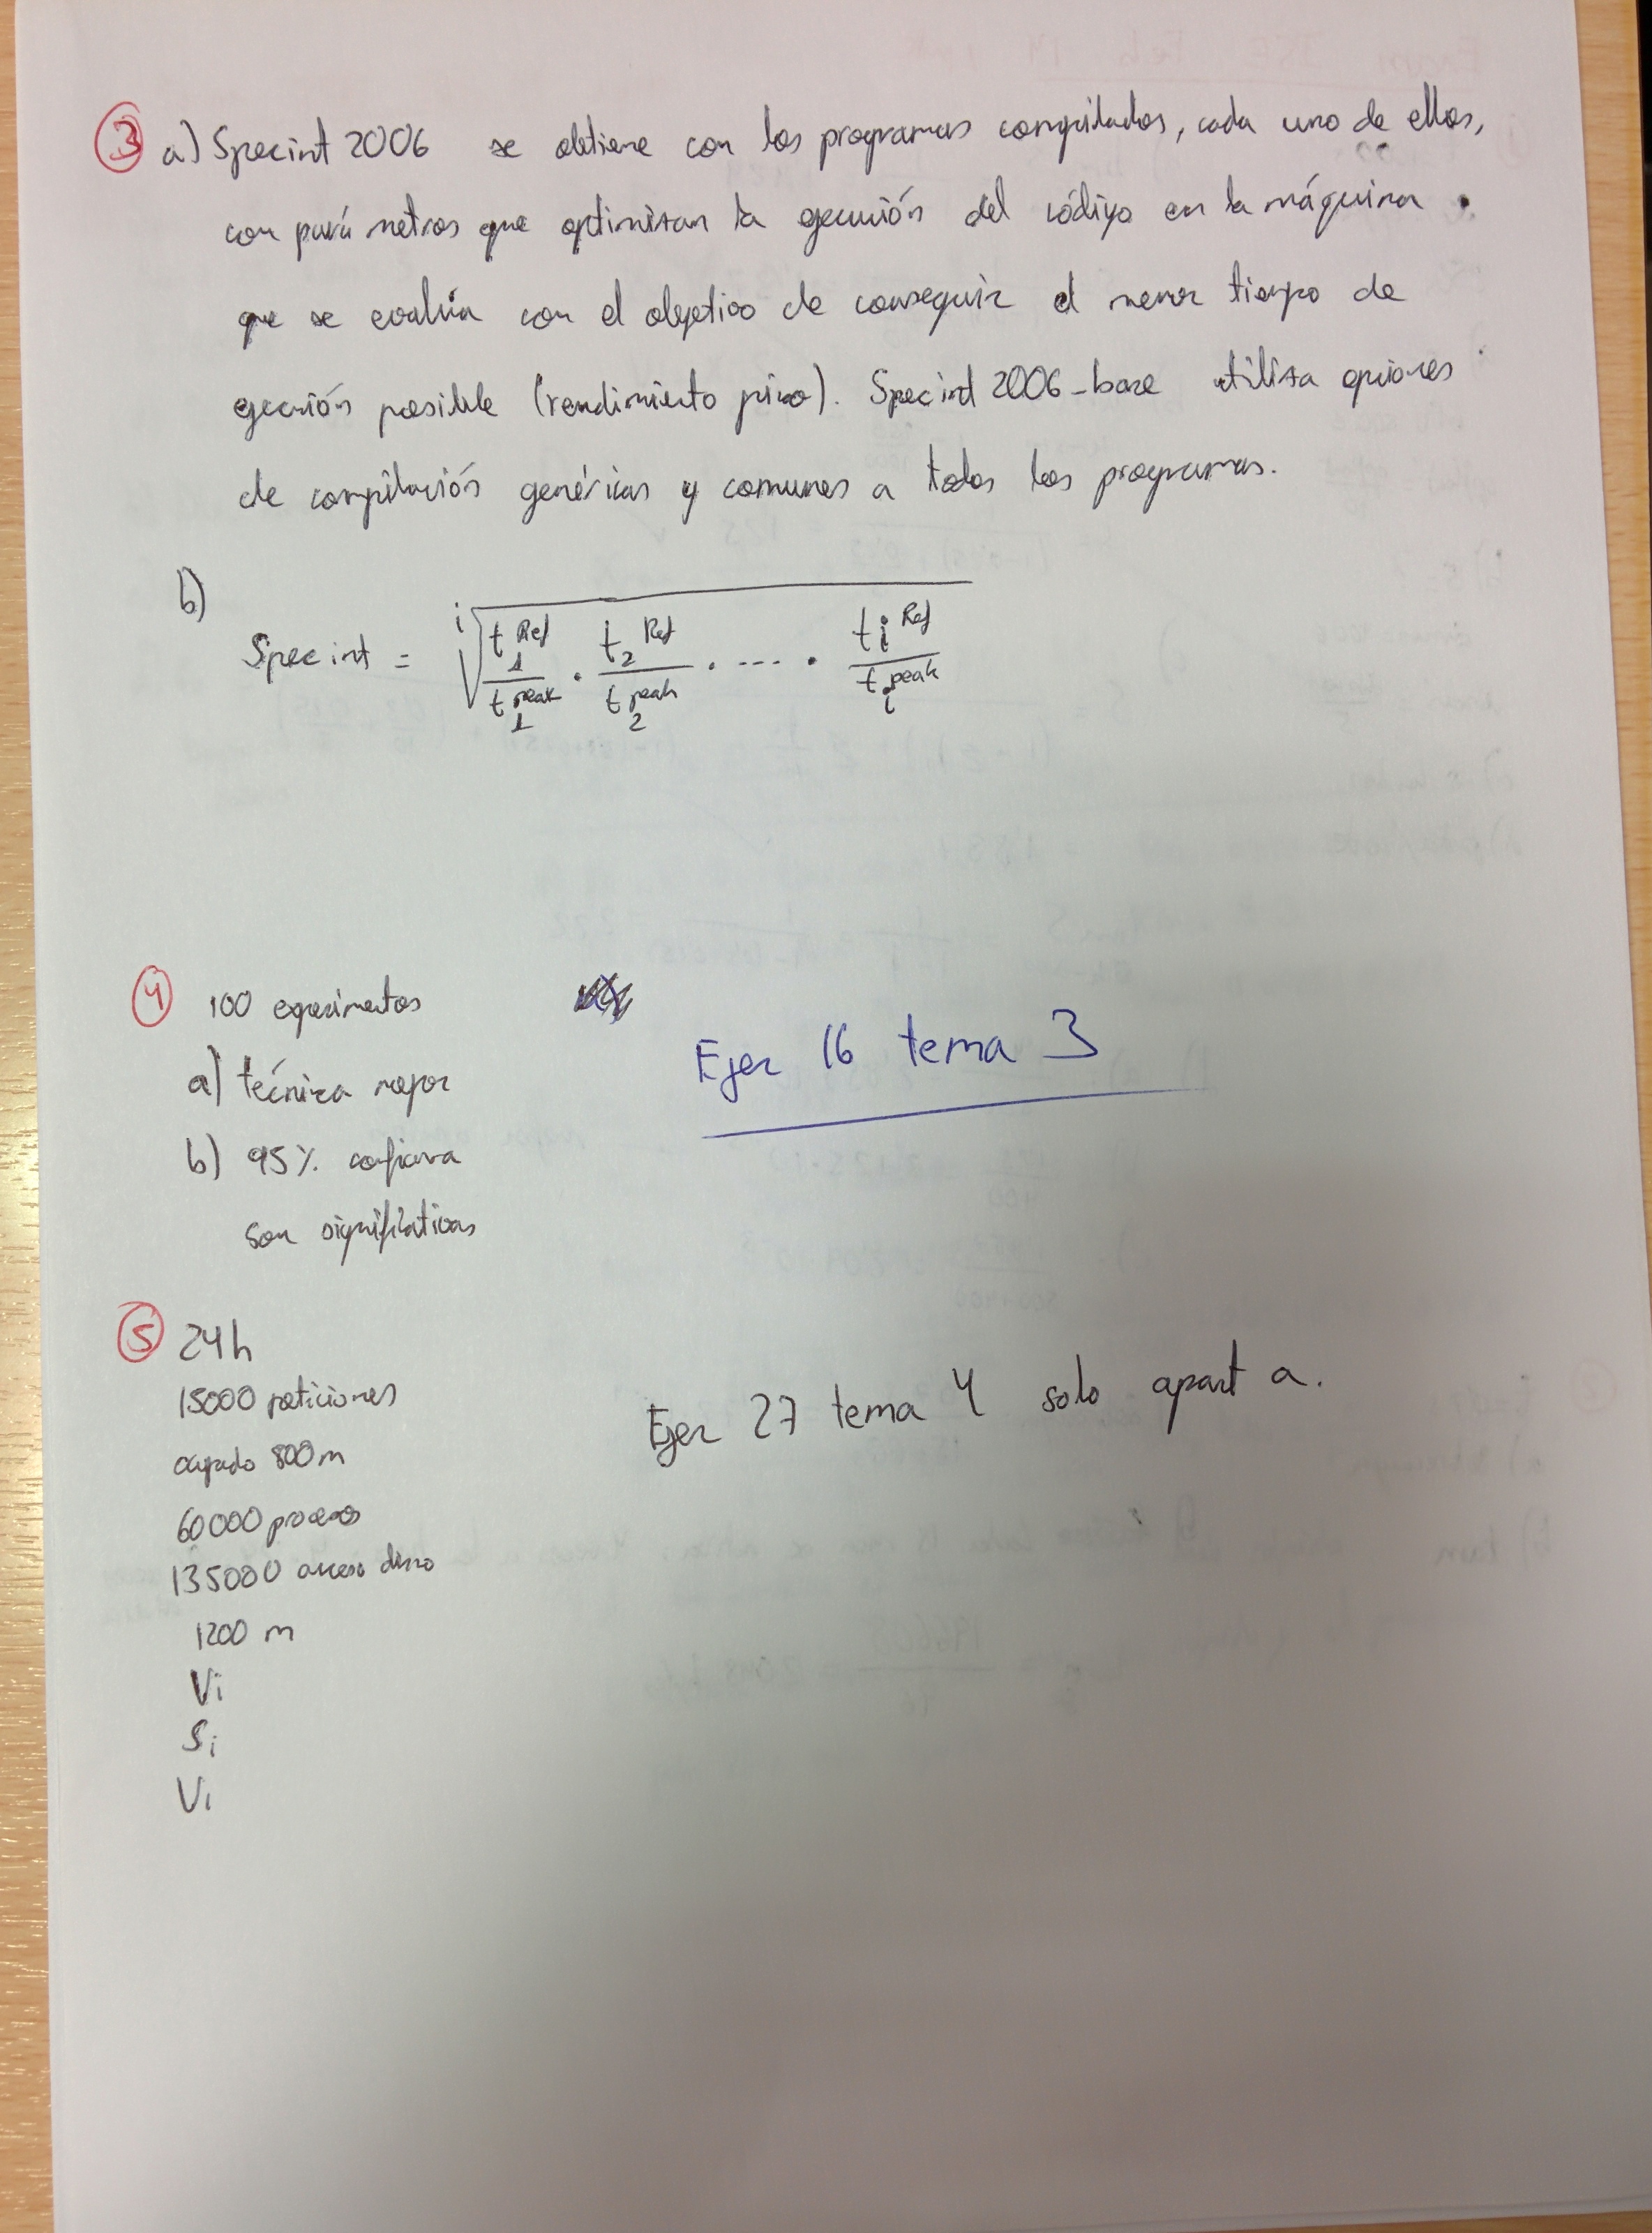 ③ a) Specint 2006 se obtiene con los programas compilados, cada uno de ellos,
con parámetros que optimizan la ejecución del código en la máquina
que se evalúa con el objetivo de conseguir el menor tiempo de
ejecución posible (rendimiento pico). Specint 2006-base utiliza opciones
de compilación genéricas y comunes a todos los programas.
b)
Specint = \sqrt[i]{\frac{t_1^{Ref}}{t_1^{peak}} \cdot \frac{t_2^{Ref}}{t_2^{peak}} \cdot .... \cdot \frac{t_i^{Ref}}{t_i^{peak}}}
④ 100 experimentos
Ejer 16 tema 3
a) técnica mejor
b) 95% confianza
son significativas
⑤ 24h
15000 peticiones
ocupado 800m
Ejer 27 tema 4 solo apart a.
60000 procesos
135000 acceso disco
1200 m
Vi
Si
Ui